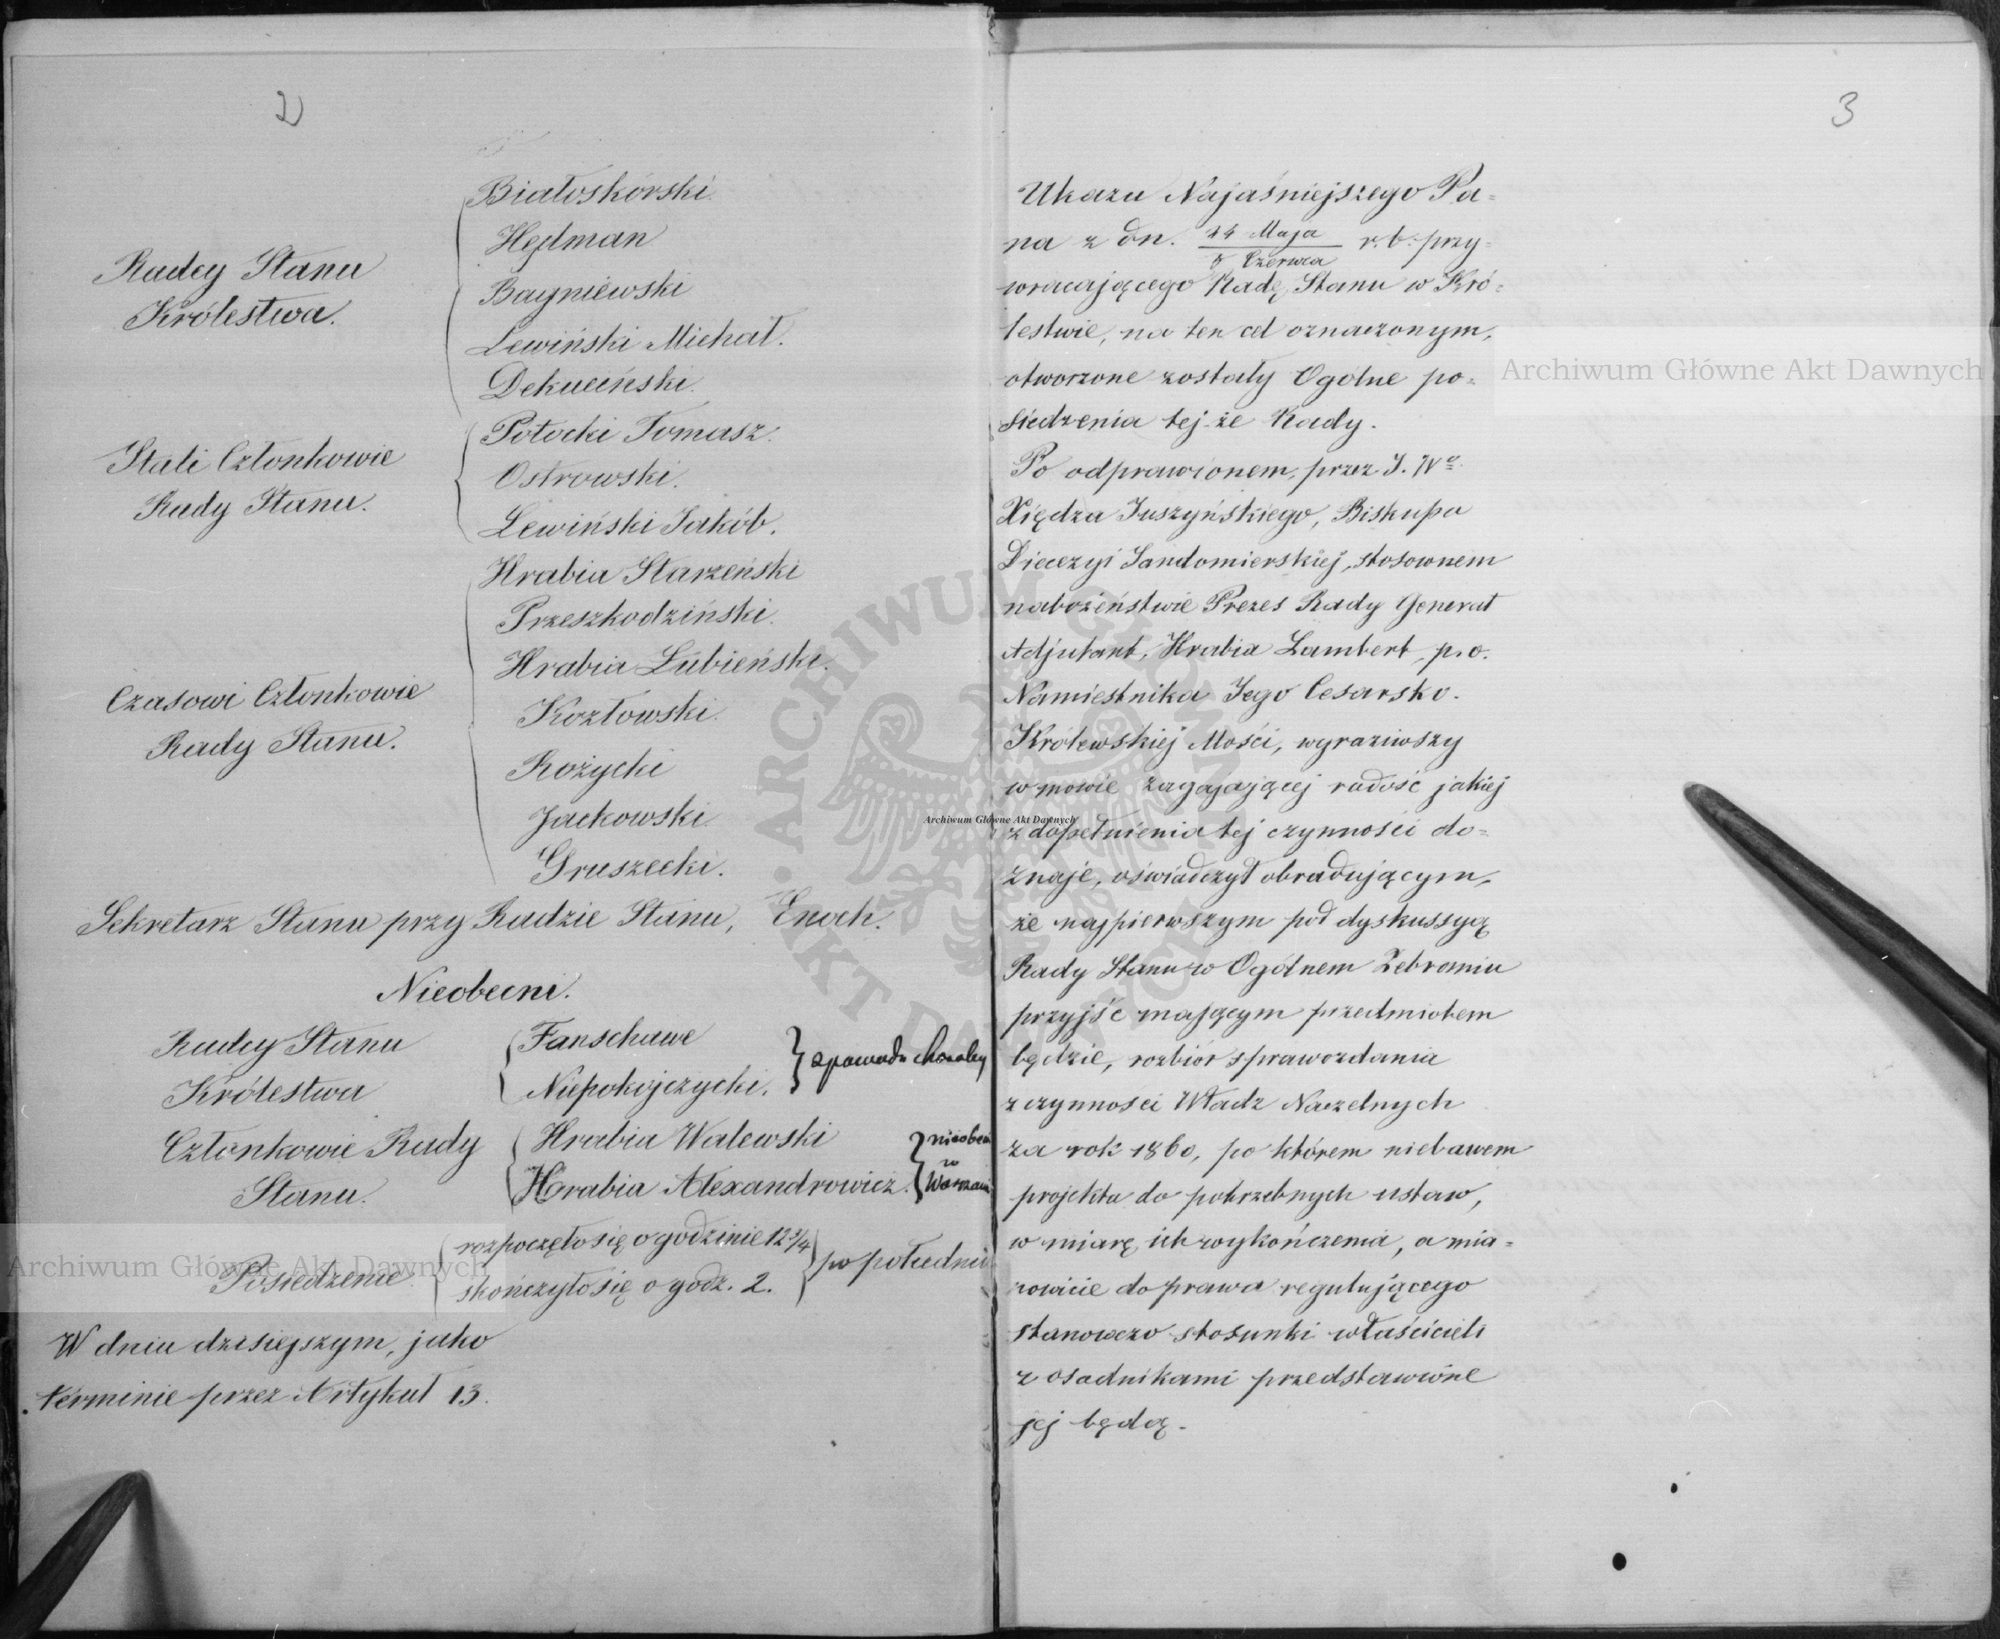 2
Radcy Stanu
Królestwa.
Białoskórski.
Hejdman
Bagniewski
Lewiński Michał.
Dekuciński.
Stali Członkowie
Rady Stanu.
Potocki Tomasz.
Ostrowski.
Lewiński Jakób.
Czasowi Członkowie
Rady Stanu.
Hrabia Starzeński
Przeszkodziński.
Hrabia Łubieński.
Kozłowski.
Rożycki
Jackowski.
Gruszecki.
Sekretarz Stanu przy Radzie Stanu, Enoch.
Nieobecni.
Radcy Stanu
Królestwa
Fanschawe
Niepokojczycki.
z powodu choroby
Członkowie Rady
Stanu.
Hrabia Walewski
Hrabia Alexandrowicz.
nieobecni
w
Warszawie
Posiedzenie
rozpoczęło się o godzinie 12 3/4
skończyło się o godz. 2.
po południu
W dniu dzisiejszym, jako
terminie przez Artykuł 13.
3
Ukazu Najaśniejszego Pa=
na z dn. 24 Maja / 5 Czerwca r. b. przy=
wracającego Radę Stanu w Kró=
lestwie, na ten cel oznaczonym,
otworzone zostały Ogólne po=
siedzenia tej-że Rady.
Po odprawionem, przez J. Wo
Xiędza Juszyńskiego, Biskupa
Diecezyi Sandomierskiej, stosownem
nabożeństwie Prezes Rady Generał
Adjutant, Hrabia Lambert, p. o.
Namiestnika Jego Cesarsko-
Królewskiej Mości, wyraziwszy
w mowie zagajającej radość jakiej
z dopełnienia tej czynności do=
znaje, oświadczył obradującym,
że najpierwszym pod dyskussyą
Rady Stanu w Ogólnem Zebraniu
przyjść mającym przedmiotem
będzie, rozbiór sprawozdania
z czynności Władz Naczelnych
za rok 1860, po którem niebawem
projekta do potrzebnych ustaw,
w miarę ich wykończenia, a mia=
nowicie do prawa regulującego
stanowczo stosunki właścicieli
z osadnikami przedstawione
jej będą.
Archiwum Główne Akt Dawnych
Archiwum Główne Akt Dawnych
Archiwum Główne Akt Dawnych
ARCHIWUM GŁÓWNE AKT DAWNYCH